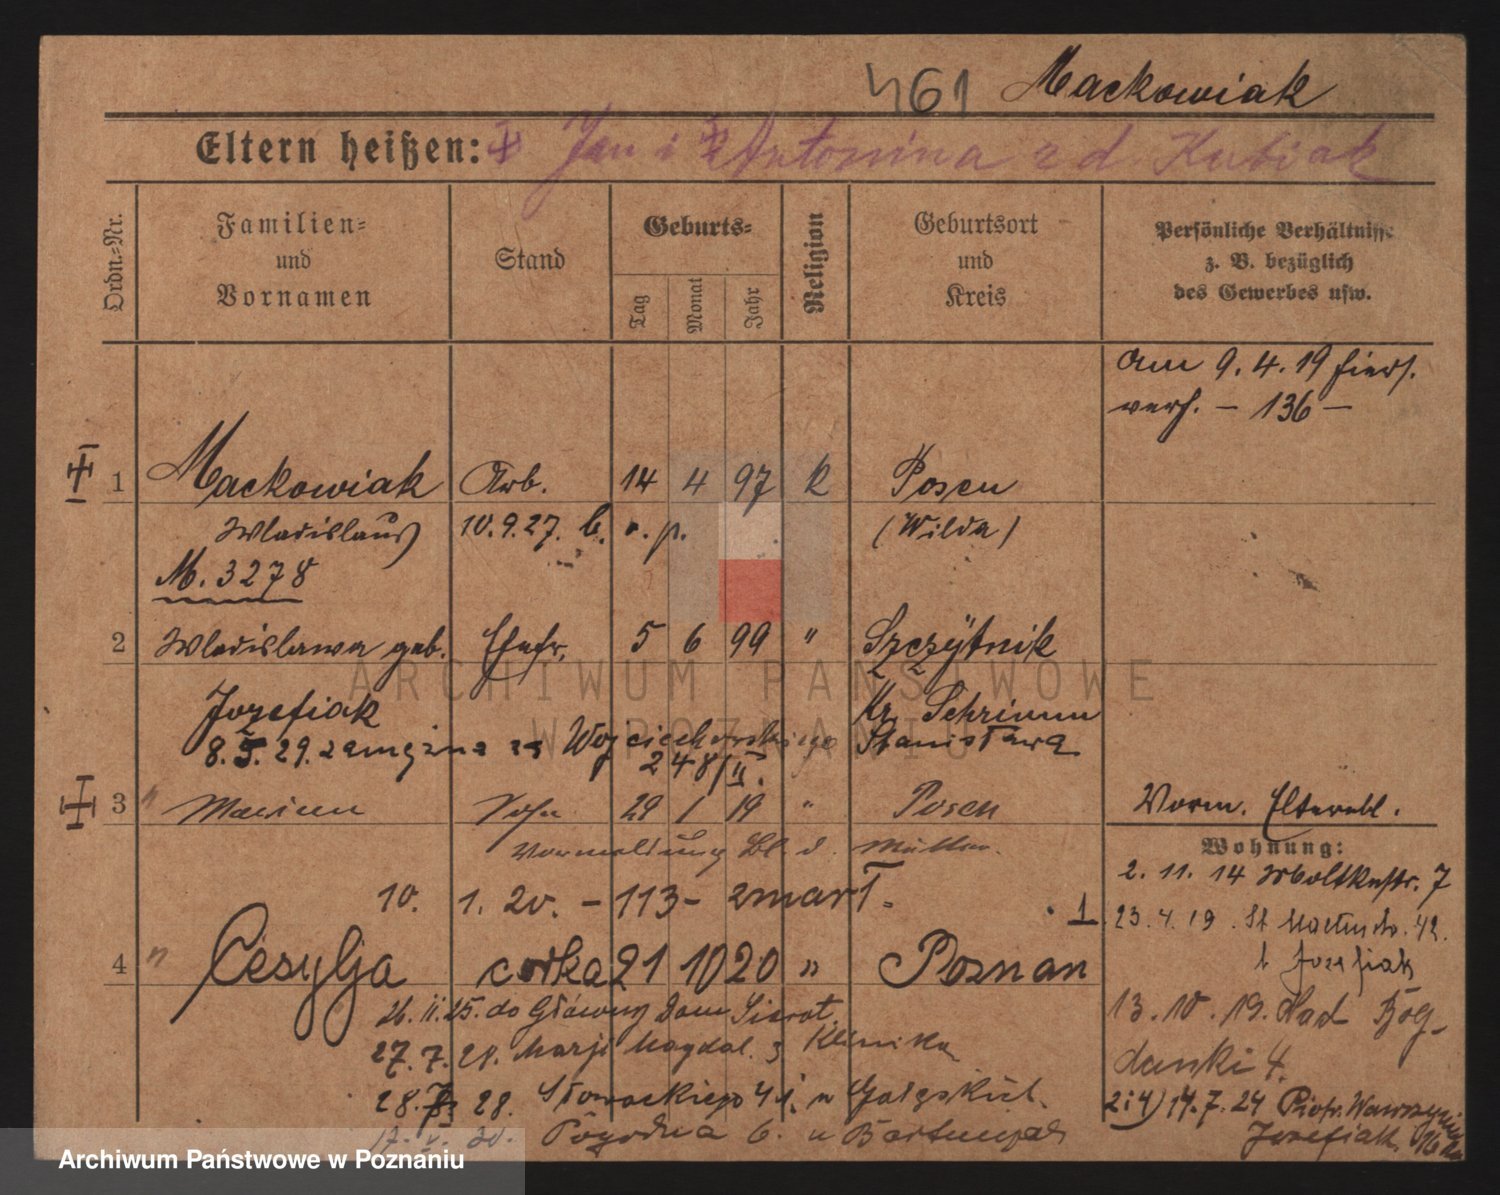 461 Mackowiak
Eltern heißen: Jan i Antonina z d. Kubiak
Ordn.-Nr.
Familien- und Vornamen
Stand
Geburts-
Tag
Monat
Jahr
Religion
Geburtsort und Kreis
Persönliche Verhältnisse z. B. bezüglich des Gewerbes usw.
am 9. 4. 19 hiers.
verh. - 136 -
1 Mackowiak Arb. 14 4 97 k Posen
Wladislaus 10.9.27. b. r. p. (Wilda)
M. 3278
2 Wladislawa geb. Ehefr. 5 6 99 " Szczytnik
Jozefiak Kr. Schrimm
8.5.29. zamężna za Wojciechowskiego Stanisława
248/II.
3 " Marian Sohn 29 1 19 " Posen Vorm. Elternbl.
Vormeldung Bl. d. Mutter.
Wohnung:
2. 11. 14 Moltkestr. 7
10. 1. 20. - 113 - zmarł.
1. 23.4.19. St Martinstr. 42.
b Jozefiak
4 " Cesylja corka 21 10 20 " Poznan
26.11.25. do Główny Dom Sierot.
13. 10. 19. Nad Bog-
27.7.28. Marji Magdal. 3 Klinika
danki 4.
28. 28. Słowackiego
2i4) 14.7.24 Piotr. Wawrzyniaka
17. V. 30. Pogodna 6. u
Jozefiak
ARCHIWUM PAŃSTWOWE
W POZNANIU
Archiwum Państwowe w Poznaniu